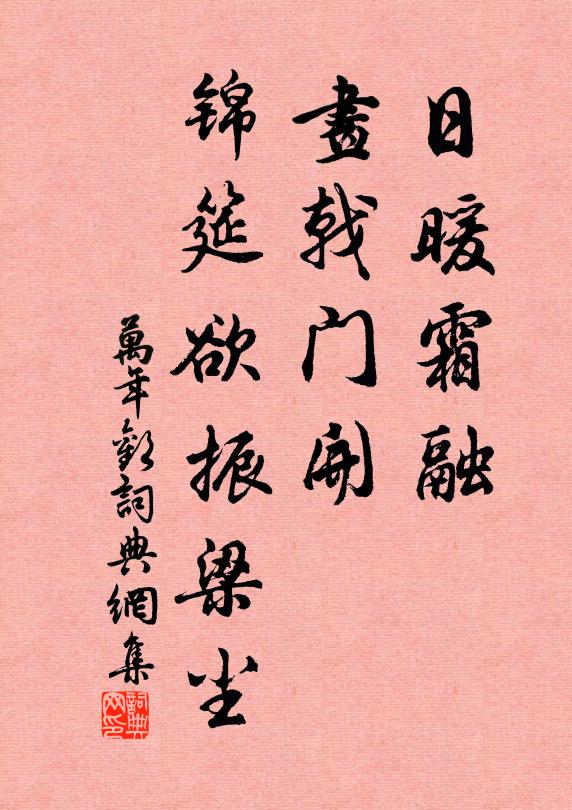 日暖霜融
畫戟门開
锦筵欲振梁尘
萬年歡詞典網集
詞典网印